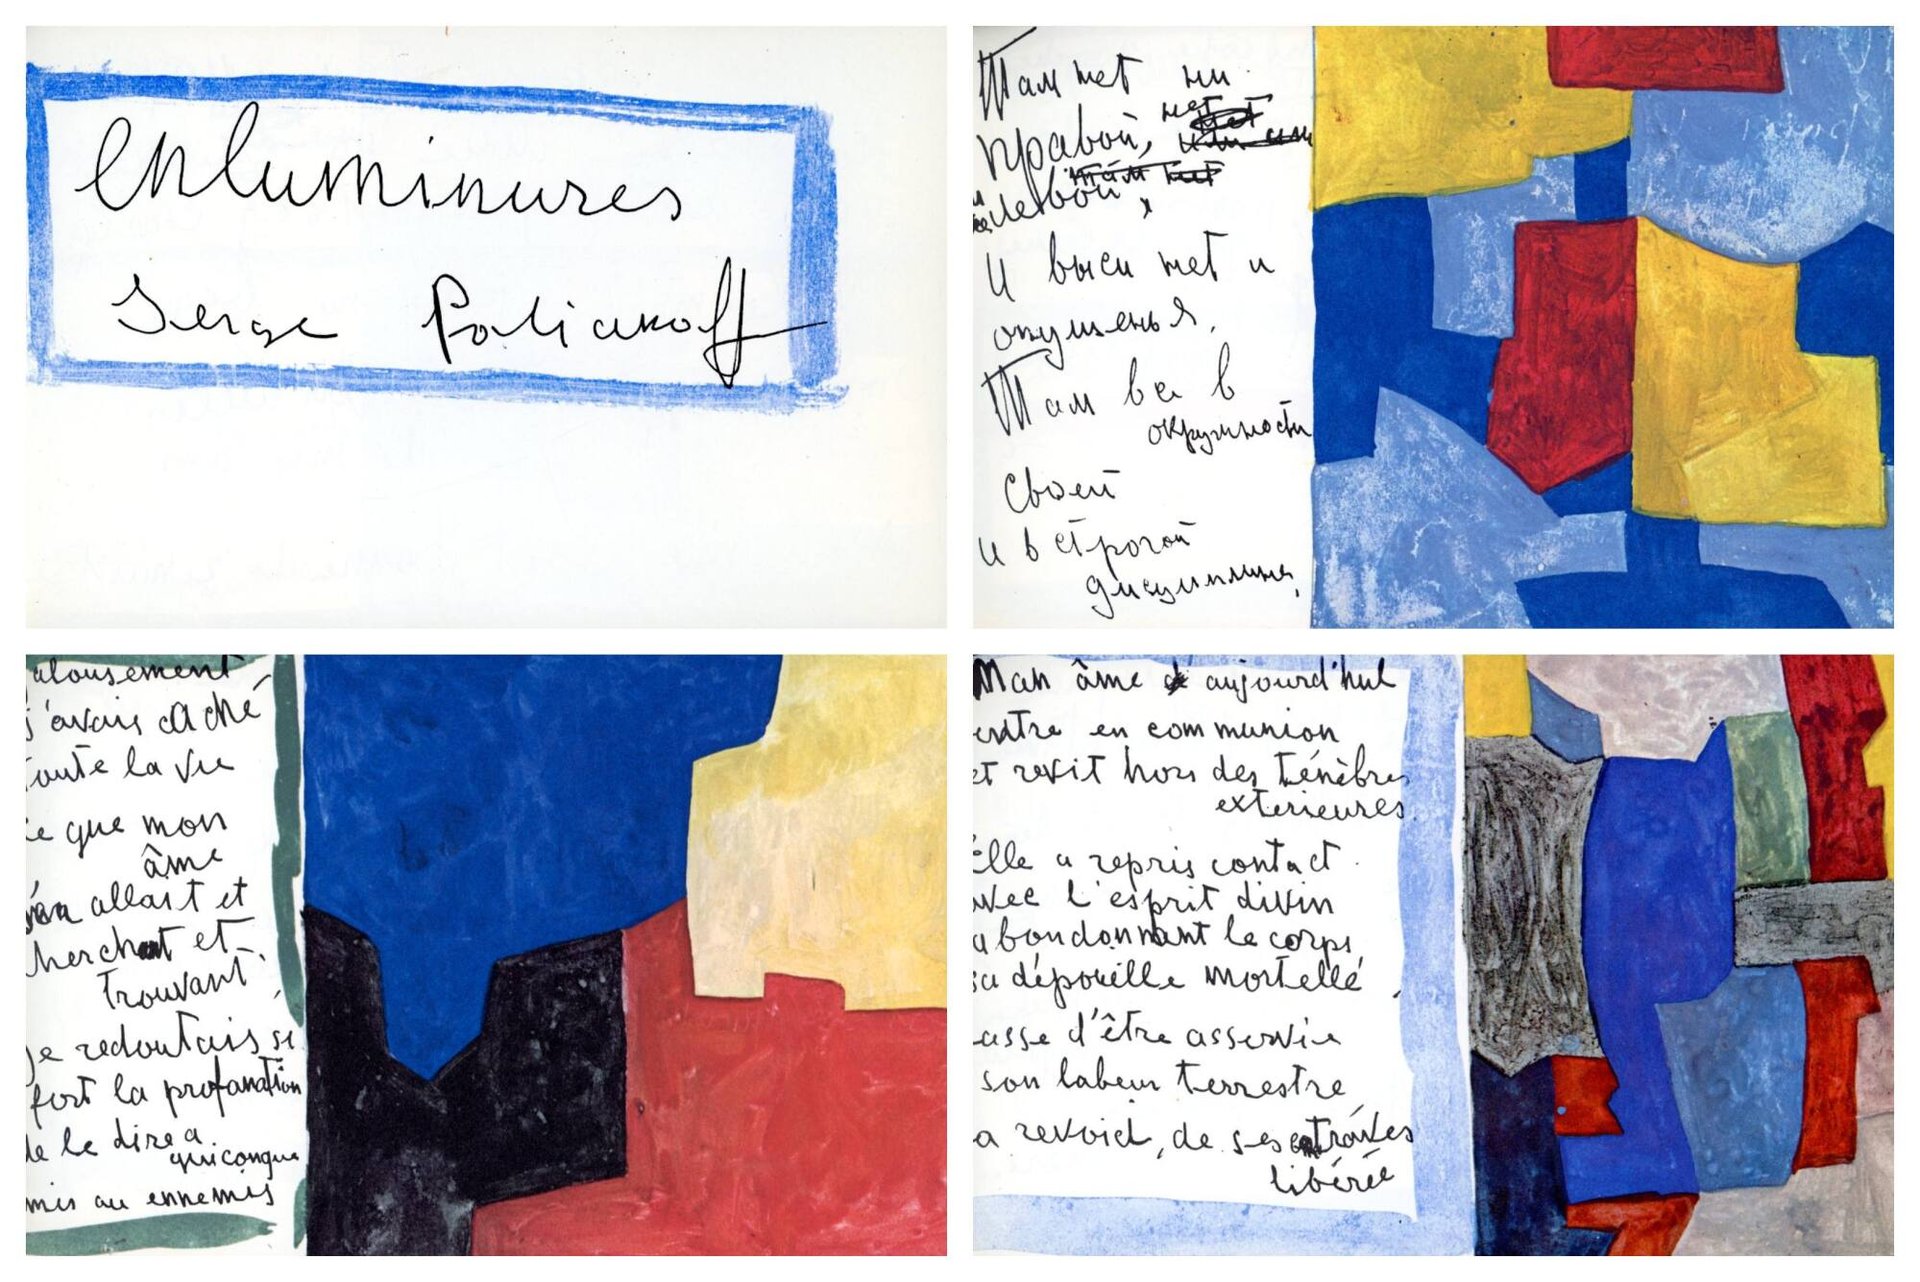 Enluminures
Serge Poliakoff
Там нет ни
правой, нет
левой
И выси нет и
опущенья.
Там все в
окружности
своей
и в строгой
дисциплине.
jalousement
j'avais caché
toute la vie
ce que mon
âme
allait et
cherchant et
trouvant.
Je redoutais si
fort la profanation
de le dire a
quiconque
amis ou ennemis
Mon âme aujourd'hui
entre en communion
et revit hors des ténèbres
exterieures
Elle a repris contact
avec l'esprit divin
abondonnant le corps
sa dépouille mortelle,
lasse d'être asservie
son labeur terrestre
la revoici, de ses entraves
libérée